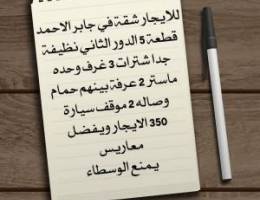 للايجار شقة في جابر الاحمد
قطعة 5 الدور الثاني نظيفة
جدا شترات 3 غرف وحده
ماستر 2 عرفة بينهم حمام
وصاله 2 موقف سيارة
350 الايجار ويفضل
معاريس
يمنع الوسطاء